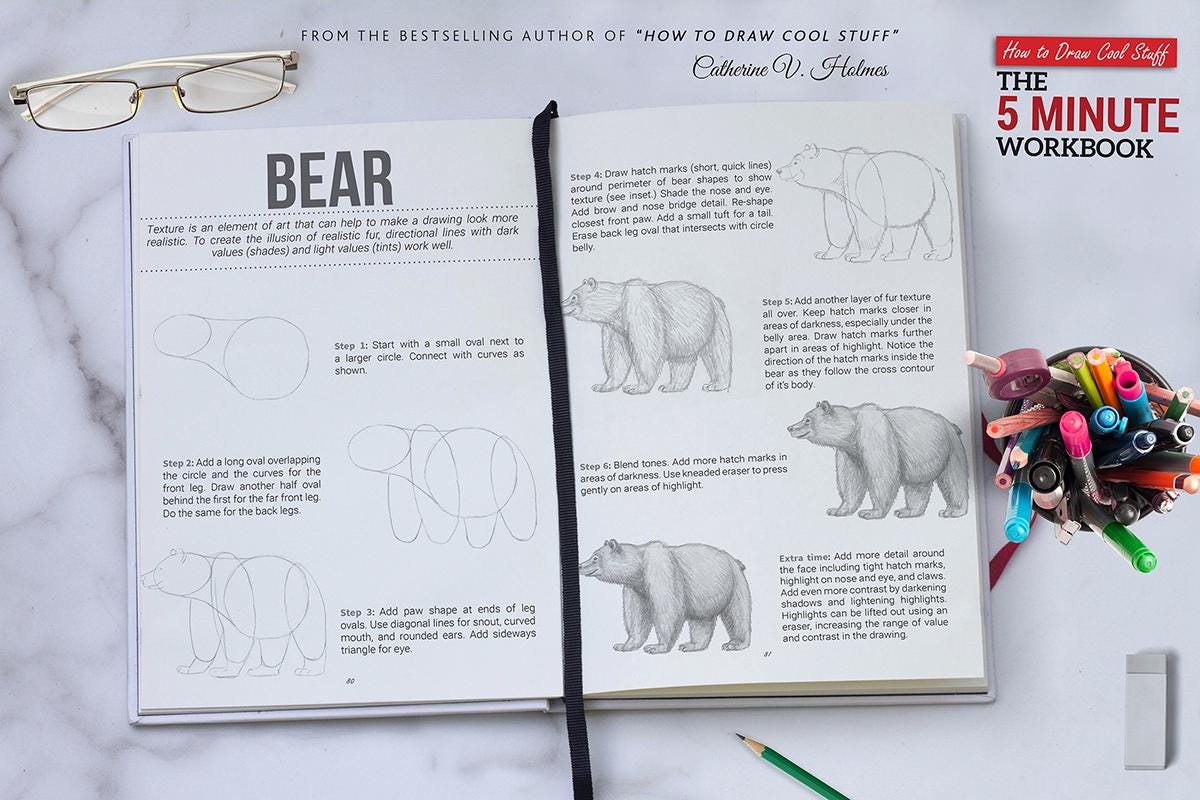 FROM THE BESTSELLING AUTHOR OF “HOW TO DRAW COOL STUFF”
Catherine V. Holmes
How to Draw Cool Stuff
THE
5 MINUTE
WORKBOOK
BEAR
Texture is an element of art that can help to make a drawing look more
realistic. To create the illusion of realistic fur, directional lines with dark
values (shades) and light values (tints) work well.
Step 1: Start with a small oval next to
a larger circle. Connect with curves as
shown.
Step 2: Add a long oval overlapping
the circle and the curves for the
front leg. Draw another half oval
behind the first for the far front leg.
Do the same for the back legs.
Step 3: Add paw shape at ends of leg
ovals. Use diagonal lines for snout, curved
mouth, and rounded ears. Add sideways
triangle for eye.
80
Step 4: Draw hatch marks (short, quick lines)
around perimeter of bear shapes to show
texture (see inset.) Shade the nose and eye.
Add brow and nose bridge detail. Re-shape
closest front paw. Add a small tuft for a tail.
Erase back leg oval that intersects with circle
belly.
Step 5: Add another layer of fur texture
all over. Keep hatch marks closer in
areas of darkness, especially under the
belly area. Draw hatch marks further
apart in areas of highlight. Notice the
direction of the hatch marks inside the
bear as they follow the cross contour
of it's body.
Step 6: Blend tones. Add more hatch marks in
areas of darkness. Use kneaded eraser to press
gently on areas of highlight.
Extra time: Add more detail around
the face including tight hatch marks,
highlight on nose and eye, and claws.
Add even more contrast by darkening
shadows and lightening highlights.
Highlights can be lifted out using an
eraser, increasing the range of value
and contrast in the drawing.
81